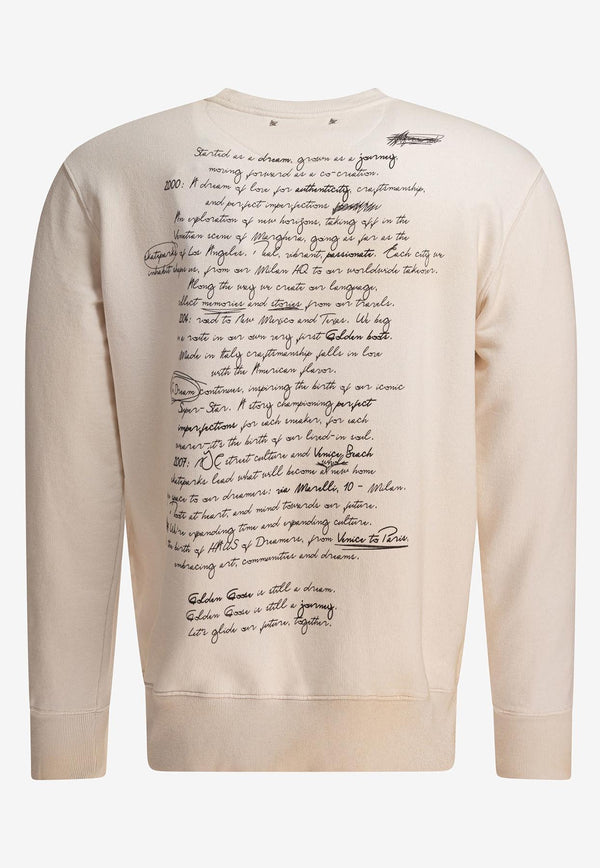 Started as a dream, grown as a journey,
moving forward as a co-creation.
2000: A dream of love for authenticity, craftsmanship,
and perfect imperfections
An exploration of new horizons, taking off in the
Venetian scene of Marghera, going as far as the
skateparks of Los Angeles. Real, vibrant, passionate. Each city we
inhabit shapes us, from our Milan HQ to our worldwide takeover.
Along the way we create our language,
collect memories and stories from our travels.
2004: road to New Mexico and Texas. We beg
a route in our own very first Golden boots.
Made in Italy craftsmanship falls in love
with the American flavor.
Dream continues, inspiring the birth of our iconic
Super-Star. A story championing perfect
imperfections for each sneaker, for each
wearer-it's the birth of our lived-in soul.
2007: street culture and Venice Beach
skateparks lead what will become a new home
space to our dreamers: via Morelli, 10 - Milan.
boots at heart, and mind towards our future.
We're expanding time and expanding culture.
the birth of HAUS of Dreamers, from Venice to Paris,
embracing art, communities and dreams.
Golden Goose is still a dream.
Golden Goose is still a journey.
Let's glide our future, together.